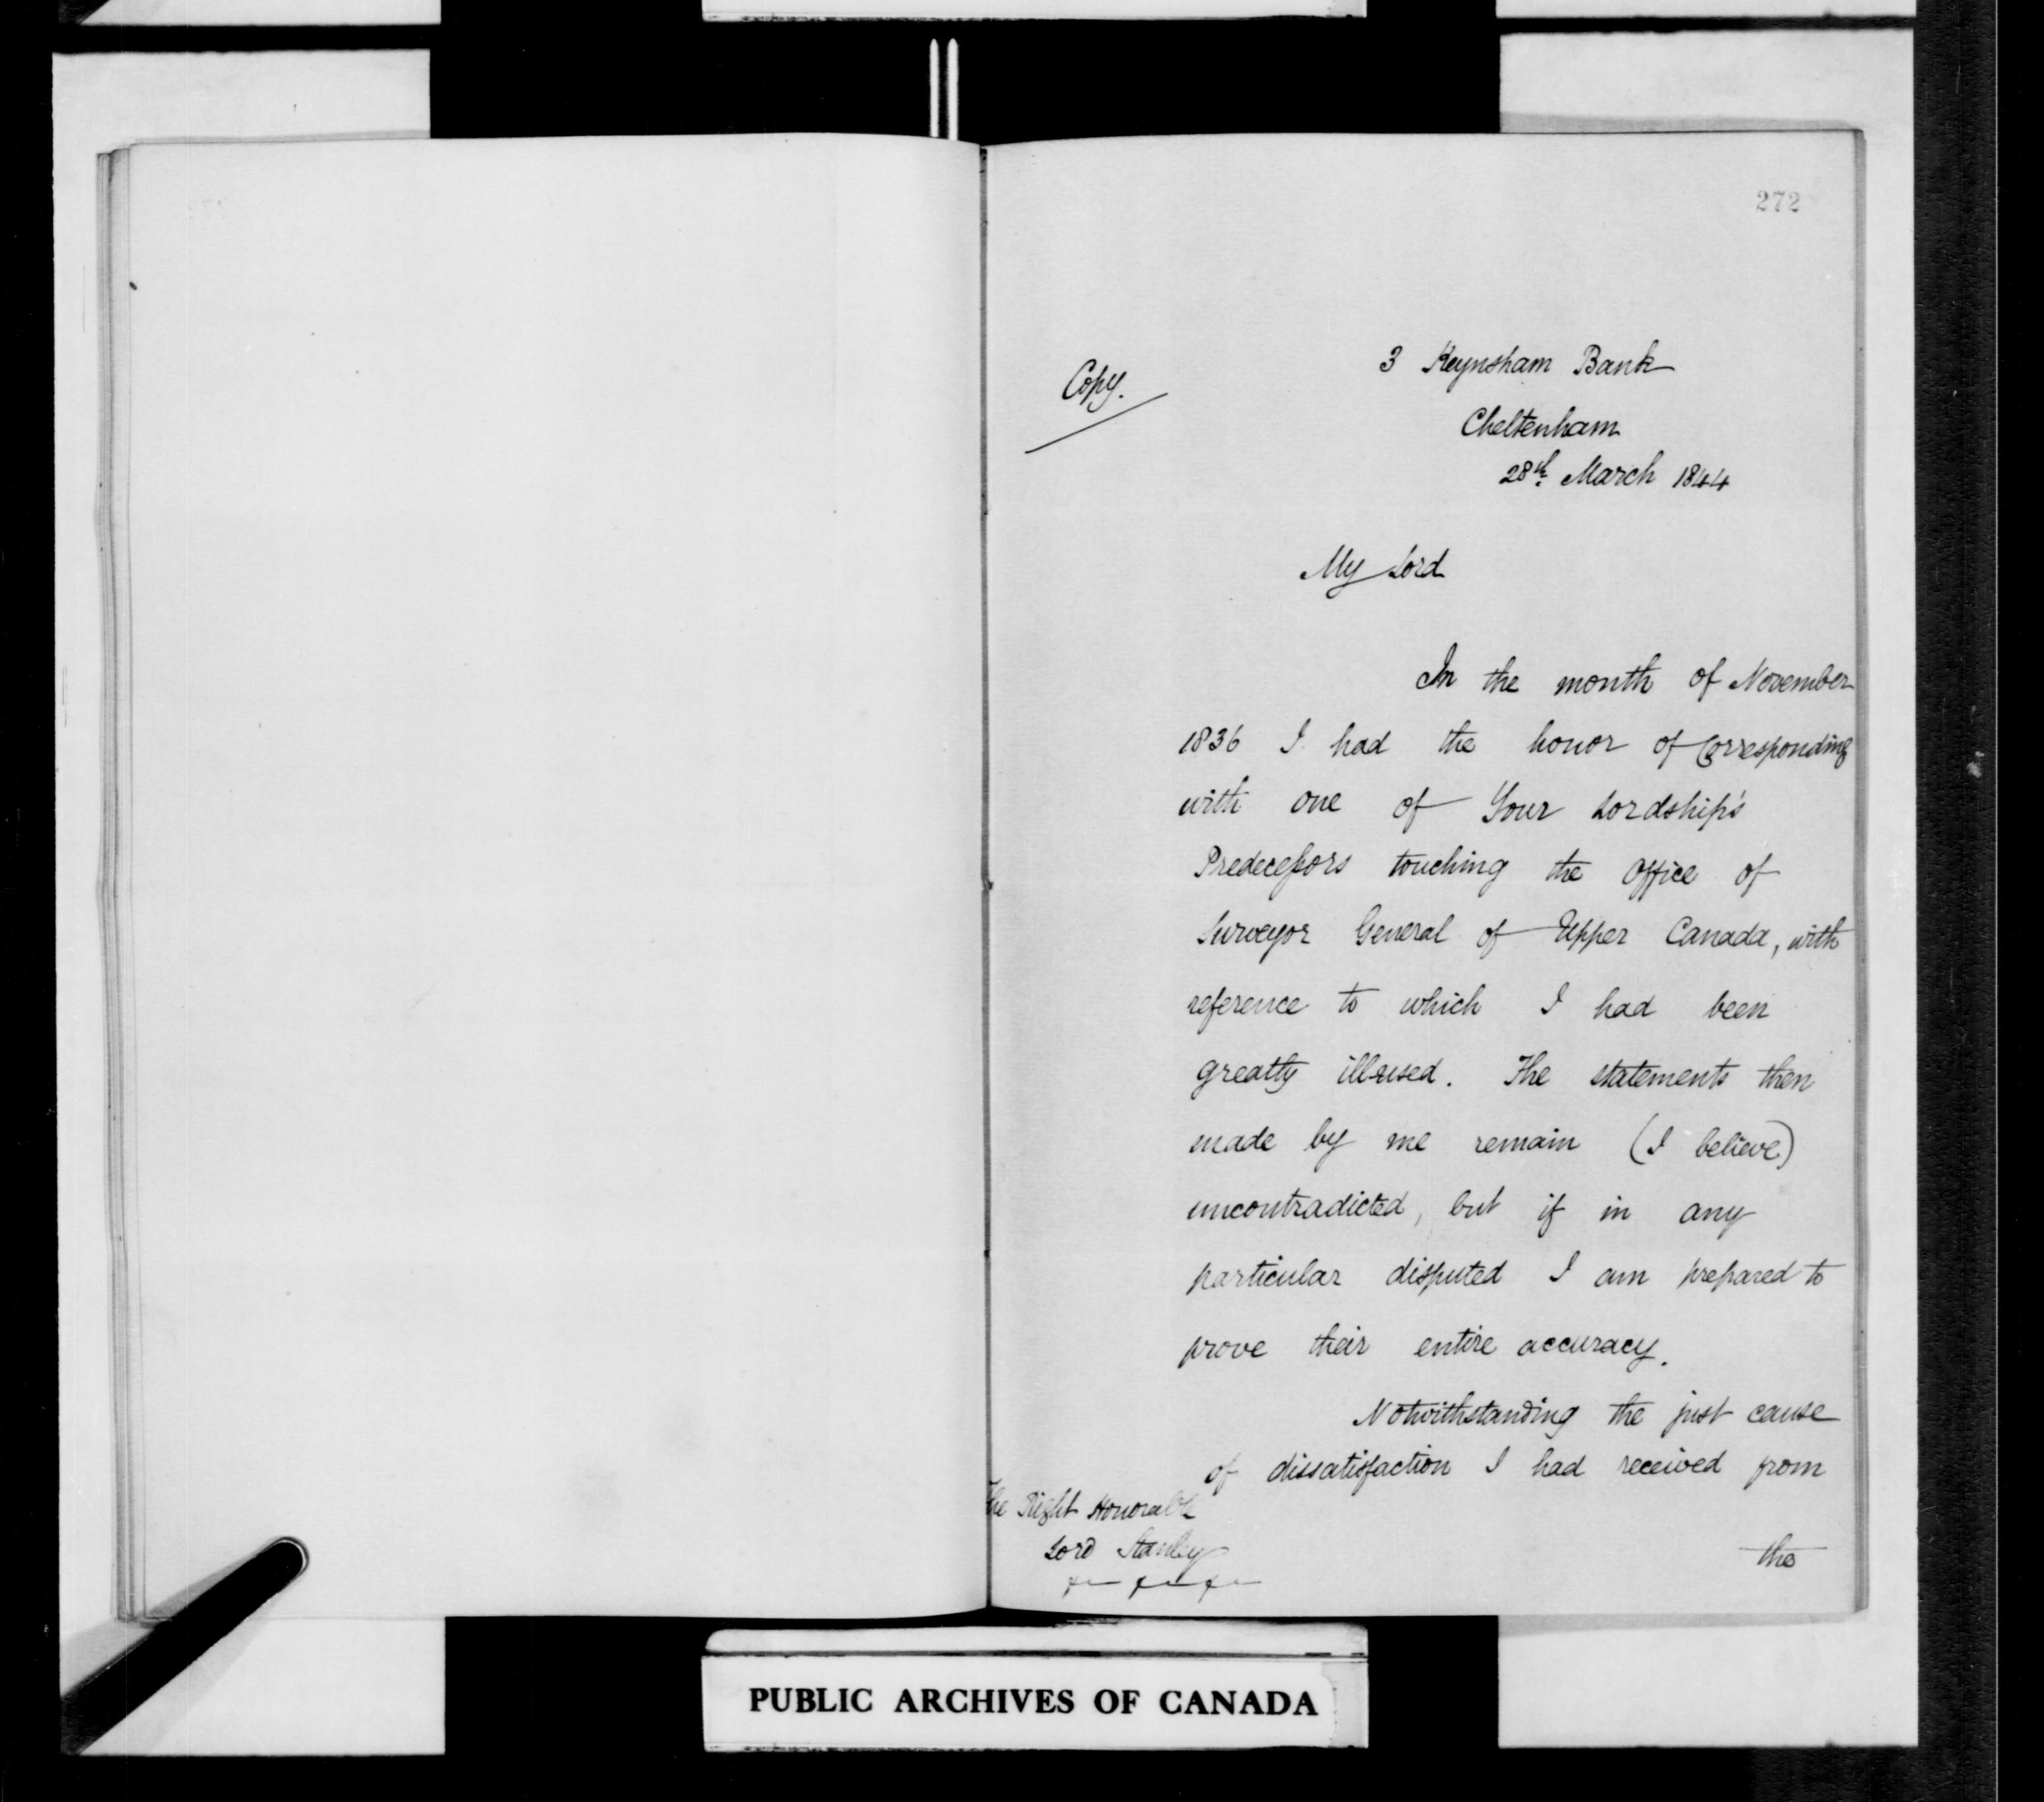 272
Copy.
3 Keynsham Bank
Cheltenham
28th March 1844
My Lord
In the month of November
1836 I had the honor of Corresponding
with one of Your Lordship's
Predecessors touching the Office of
Surveyor General of Upper Canada, with
reference to which I had been
greatly ill-used. The statements then
made by me remain (I believe)
uncontradicted, but if in any
particular disputed I am prepared to
prove their entire accuracy.
Notwithstanding the just cause
of dissatisfaction I had received from
The Right Honorable
Lord Stanley
the
PUBLIC ARCHIVES OF CANADA